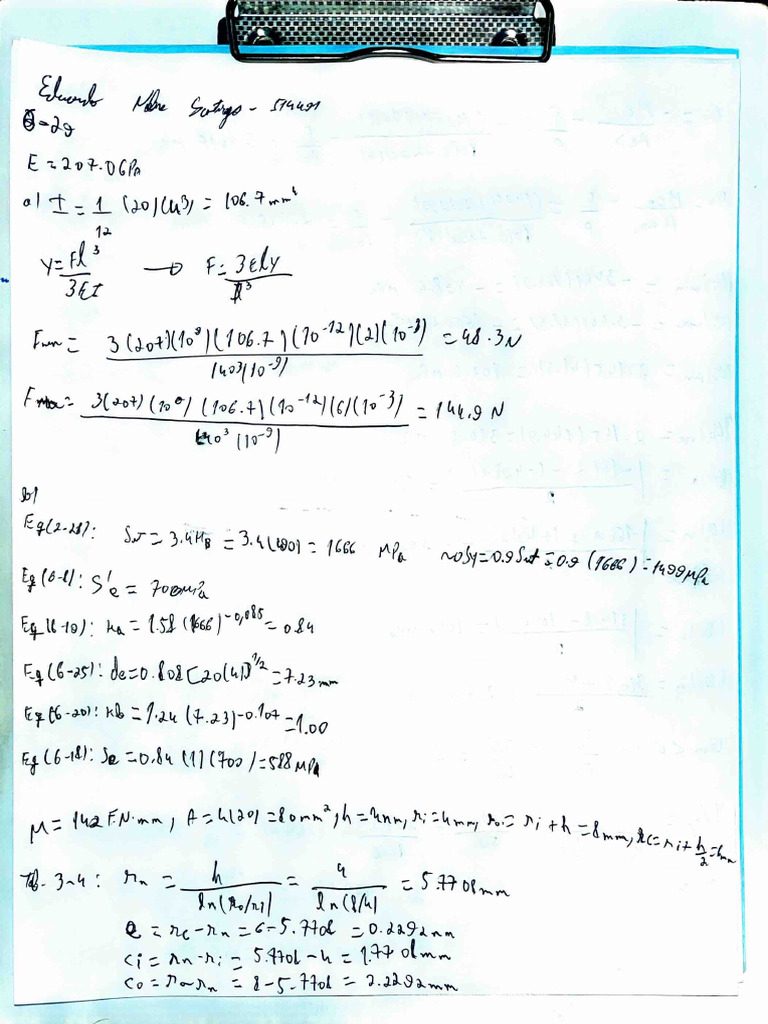 Eduardo
E = 207.0 GPa
a) I = 1/12 (20)(4³) = 106.7 mm⁴
Y = Fl³/3EI → F = 3EIy/l³
Fmin = 3(207)(10⁹)(106.7)(10⁻¹²)(2)(10⁻³)/140³(10⁻⁹) = 48.3N
Fmax = 3(207)(10⁹)(106.7)(10⁻¹²)(6)(10⁻³)/140³(10⁻⁹) = 144.9 N
b)
Eq(2-21): Sut = 3.4HB = 3.4(490) = 1666 MPa → Sy = 0.9Sut = 0.9(1666) = 1499 MPa
Eq(6-8): S'e = 700 MPa
Eq(6-19): ka = 1.58(1666)^-0,085 = 0.84
Eq(6-25): de = 0.808[20(4)]^1/2 = 7.23 mm
Eq(6-20): kb = 1.24(7.23)^-0.107 = 1.00
Eq(6-18): Se = 0.84(1)(700) = 588 MPa
M = 142 F.N.mm, A = 4(20) = 80mm², h = 4mm, ri = 4mm, ro = ri + h = 8mm, rc = ri + h/2 = 6mm
Tab. 3-4: rn = h/ln(ro/ri) = 4/ln(8/4) = 5.7708mm
e = rc - rn = 6 - 5.7708 = 0.2292mm
ci = rn - ri = 5.7708 - 4 = 1.7708mm
co = ro - rn = 8 - 5.7708 = 2.2292mm